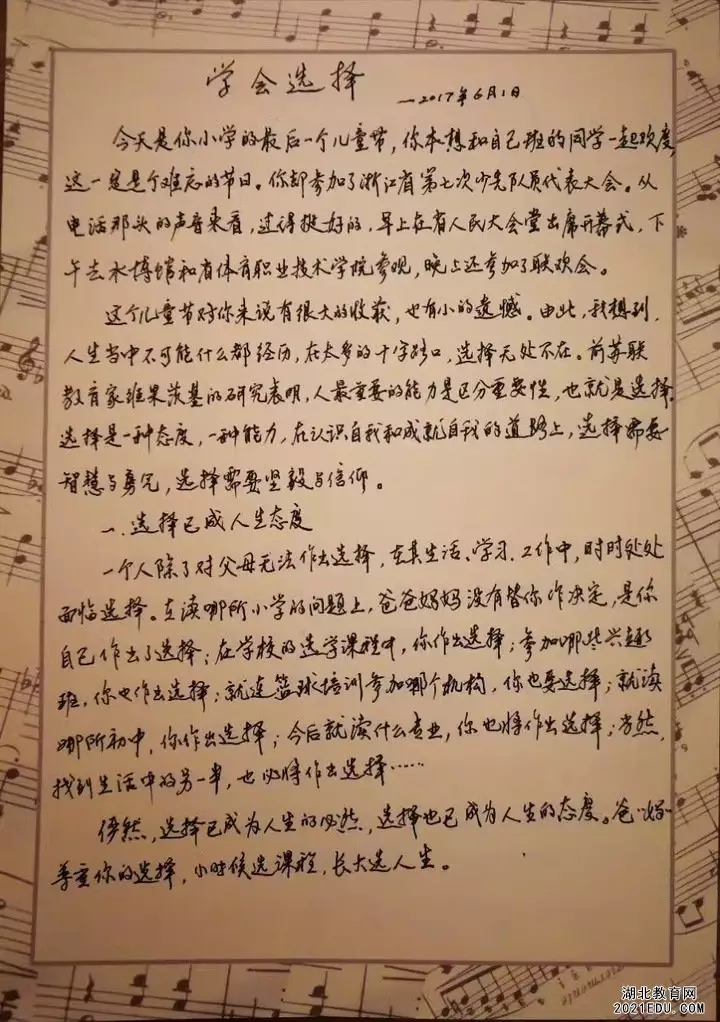 学会选择
—2017年6月1日
今天是你小学的最后一个儿童节，你本想和自己班的同学一起欢度，
这一定是个难忘的节日。你却参加了浙江省第七次少先队员代表大会。从
电话那头的声音来看，过得挺好的，早上在省人民大会堂出席开幕式，下
午去水博馆和省体育职业技术学院参观，晚上还参加了联欢会。
这个儿童节对你来说有很大的收获，也有小的遗憾。由此，我想到，
人生当中不可能什么都经历，在太多的十字路口，选择无处不在。前苏联
教育家维果茨基的研究表明，人最重要的能力是区分重要性，也就是选择。
选择是一种态度，一种能力，在认识自我和成就自我的道路上，选择需要
智慧与勇气，选择需要坚毅与信仰。
一、选择已成人生态度
一个人除了对父母无法作出选择，在其生活、学习、工作中，时时处处
面临选择。在读哪所小学的问题上，爸爸妈妈没有替你作决定，是你
自己作出了选择；在学校的选学课程中，你作出选择；参加哪些兴趣
班，你也作出选择；就连篮球培训参加哪个机构，你也要选择；就读
哪所初中，你作出选择；今后就读什么专业，你也将作出选择；当然，
找到生活中的另一半，也必将作出选择……
俨然，选择已成为人生的必然，选择也已成为人生的态度。爸妈
尊重你的选择，小时候选课程，长大选人生。
湖北教育网
2021EDU.COM